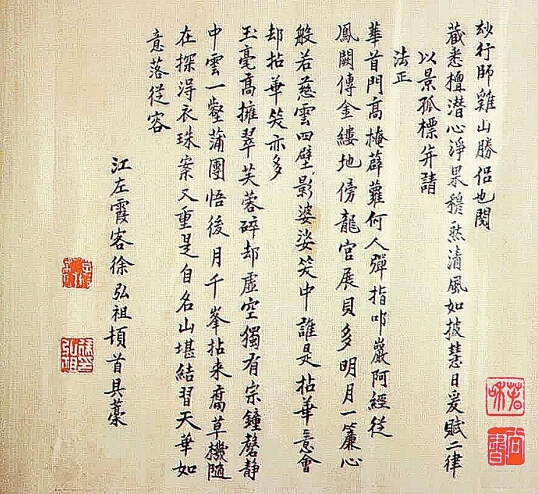 玅行師雞山勝侶也閱
藏悉檀潛心淨果穆然清風如披慧日爰賦二律
以景孤標并請
法正
華首門高掩薜蘿何人彈指叩巖阿經從
鳳闕傳金縷地傍龍宮展貝多明月一簾心
般若慈雲四壁影婆娑笑中誰是拈華意會
却拈華笑亦多
玉毫高擁翠芙蓉碎却虛空獨有宗鐘磬静
中雲一壑蒲團悟後月千峯拈來腐草機隨
在探淂衣珠案又重是自名山堪結習天華如
意落從容
江左霞客徐弘祖頓首具藁